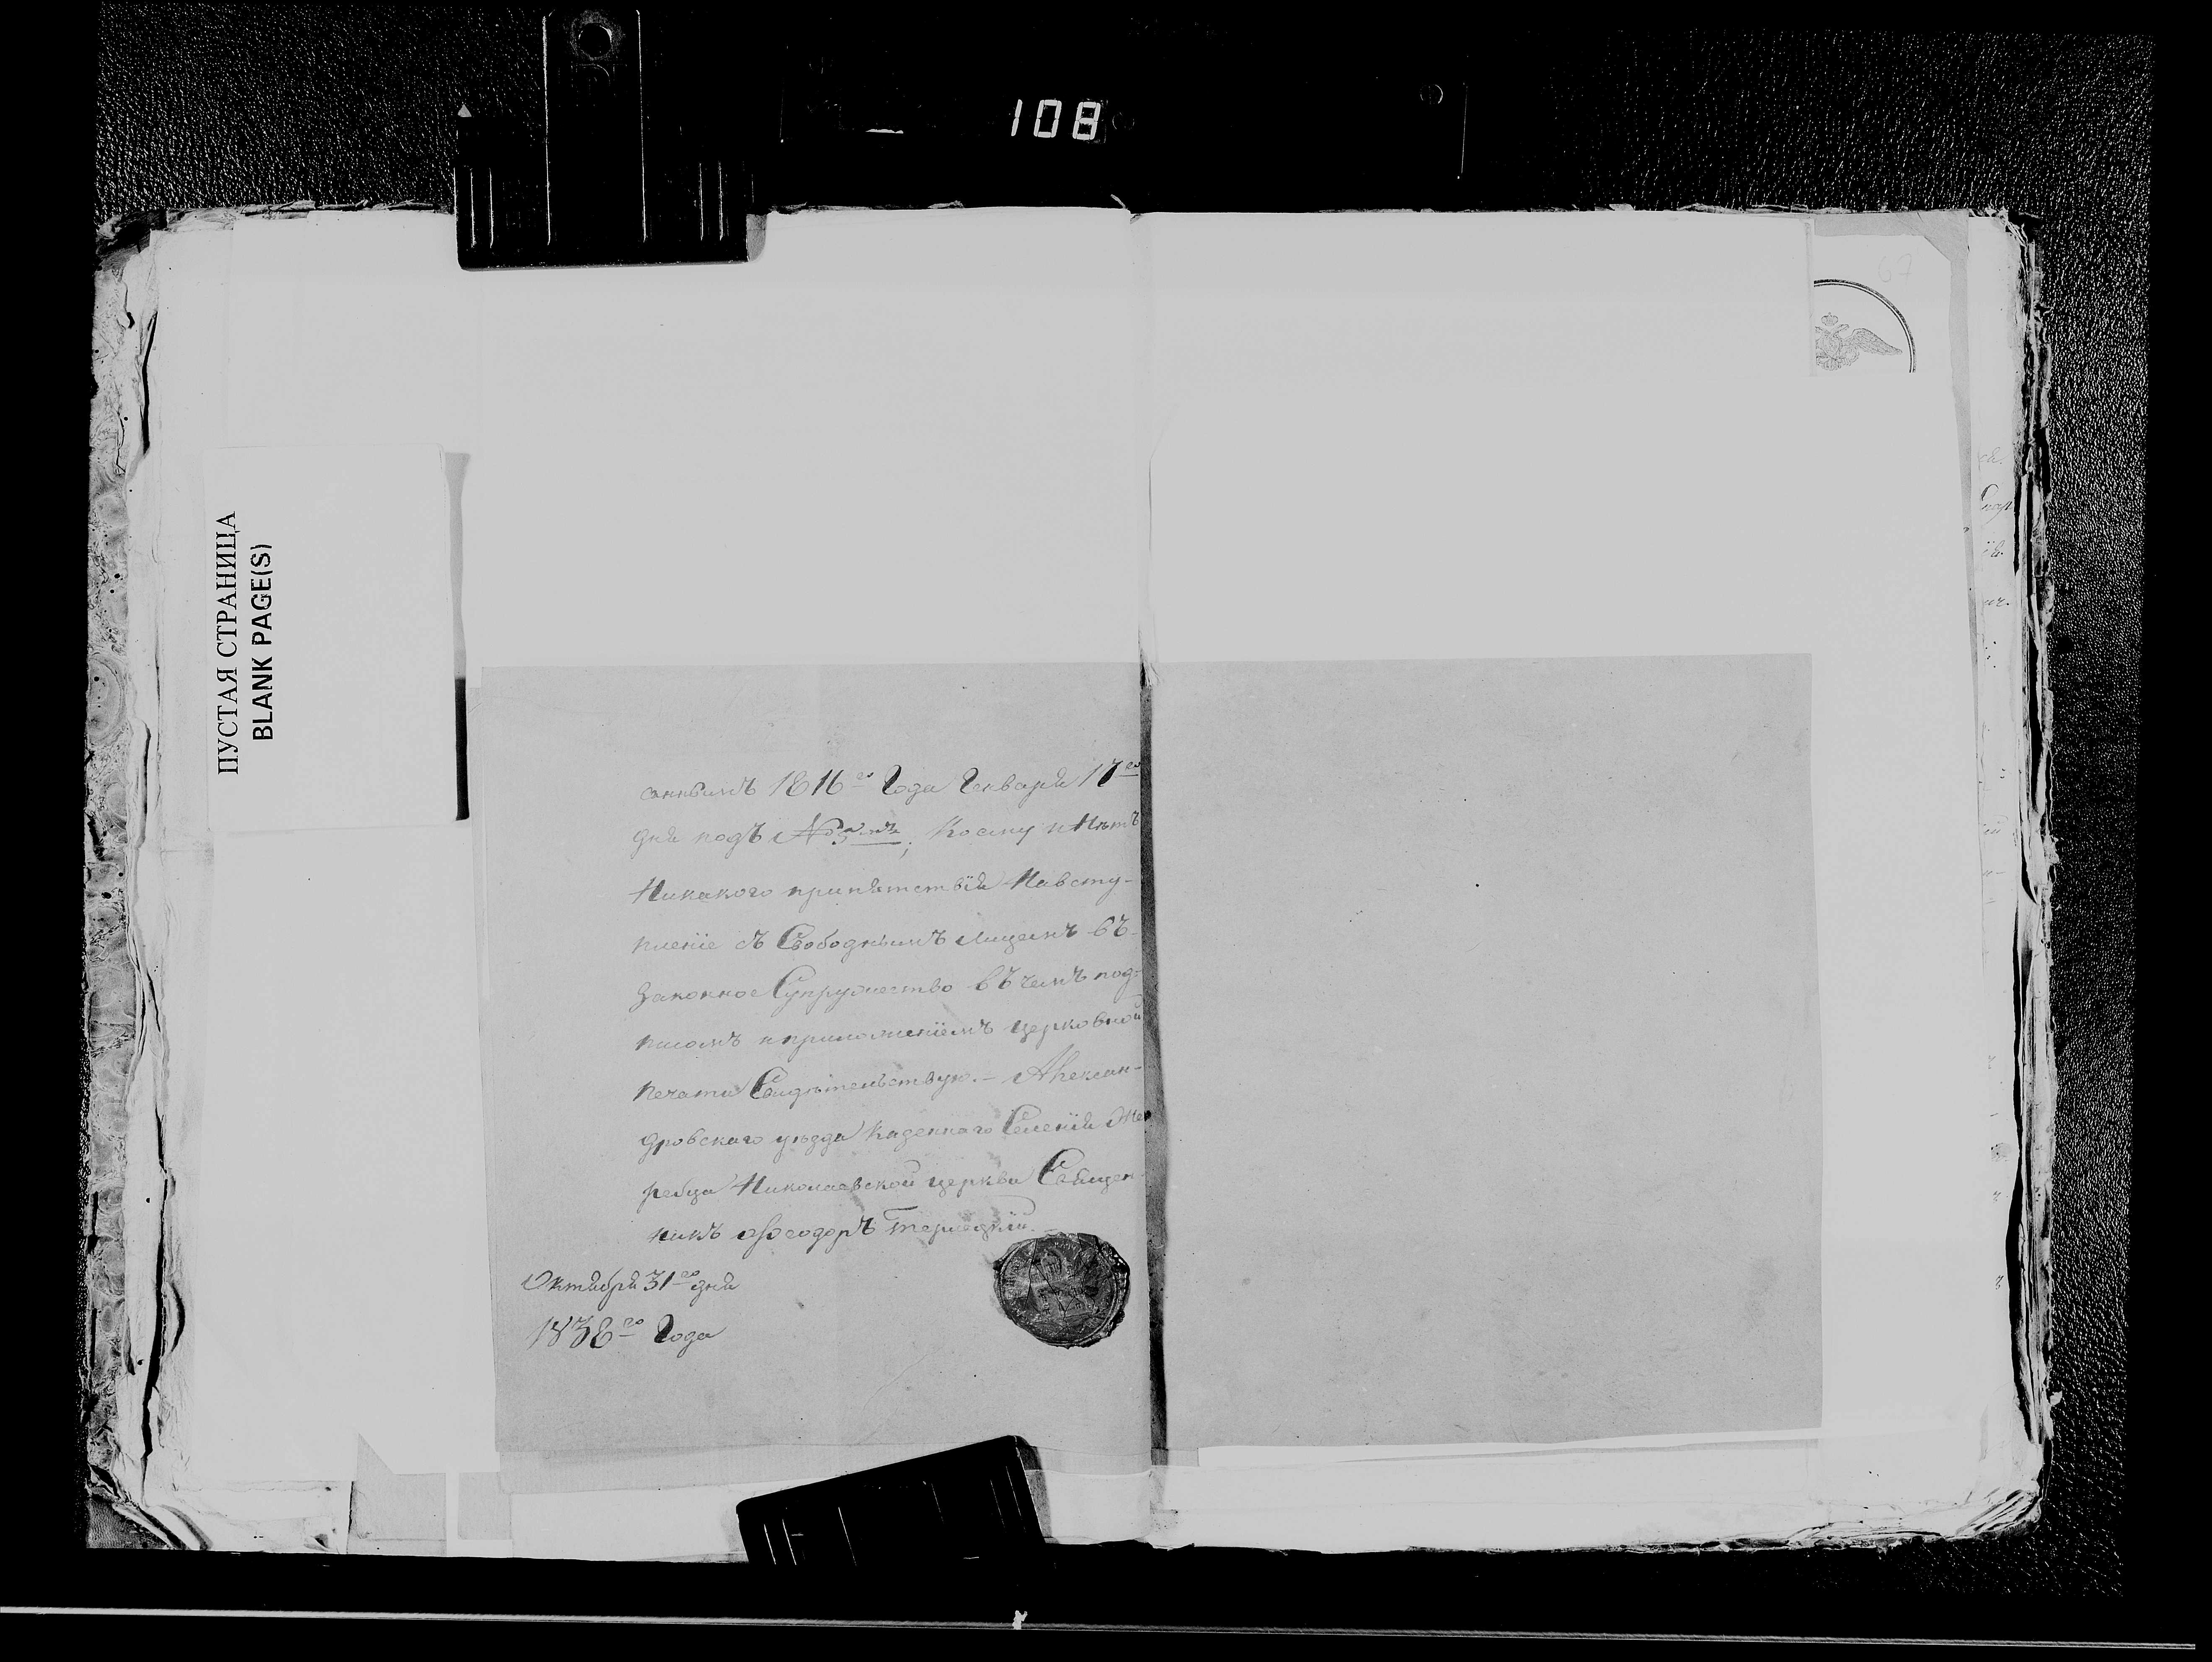 108
67
ПУСТАЯ СТРАНИЦА
BLANK PAGE(S)
саннымъ 1816го Года Генваря 17го
дня подъ №3мъ; Косму и Нѣтъ
Никакого припятствїя Навсту-
пленїе съ Свободнымъ лицемъ въ-
Законное Супружество въ чемъ под-
писомъ и приложенїемъ церковной
печати Свидѣтельствую.- Алексан-
дровскаго уѣзда Казеннаго Селенїя Же
ребца Николаевской церкви Священ-
никъ Ѳеодоръ Терлецкїй.
Октября 31го дня
1838го Года